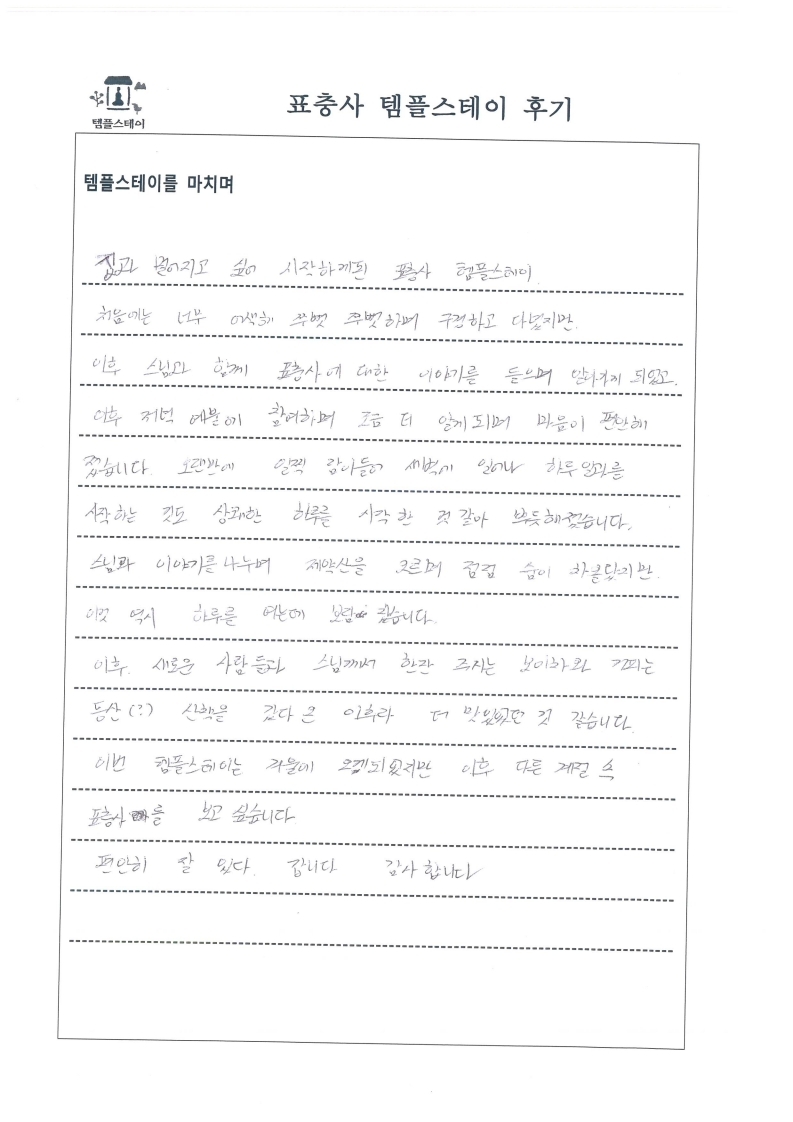 템플스테이
표충사 템플스테이 후기
템플스테이를 마치며
집과 떨어지고 싶어 시작하게된 표충사 템플스테이
처음에는 너무 어색해 쭈뼛 쭈뼛하며 구경하고 다녔지만.
이후 스님과 함께 표충사에 대한 이야기를 들으며 알아가게 되었고.
이후 저녁 예불에 참여하며 조금 더 알게되며 마음이 편안해
졌습니다. 오랜만에 일찍 잠이들어 새벽에 일어나 하루일과를
시작하는 것도 상쾌한 하루를 시작 한 것 같아 뿌듯해졌습니다.
스님과 이야기를 나누며 재약산을 오르며 점점 숨이 차올랐지만.
이것 역시 하루를 여는데 보람 찼습니다.
이후. 새로운 사람들과 스님께서 한잔 주시는 보이차와 커피는
등산(?) 산책을 갔다 온 이후라 더 맛있었던 것 같습니다.
이번 템플스테이는 겨울에 오게되었지만 이후 다른 계절 속
표충사를 보고 싶습니다
편안히 잘 있다. 갑니다 감사합니다